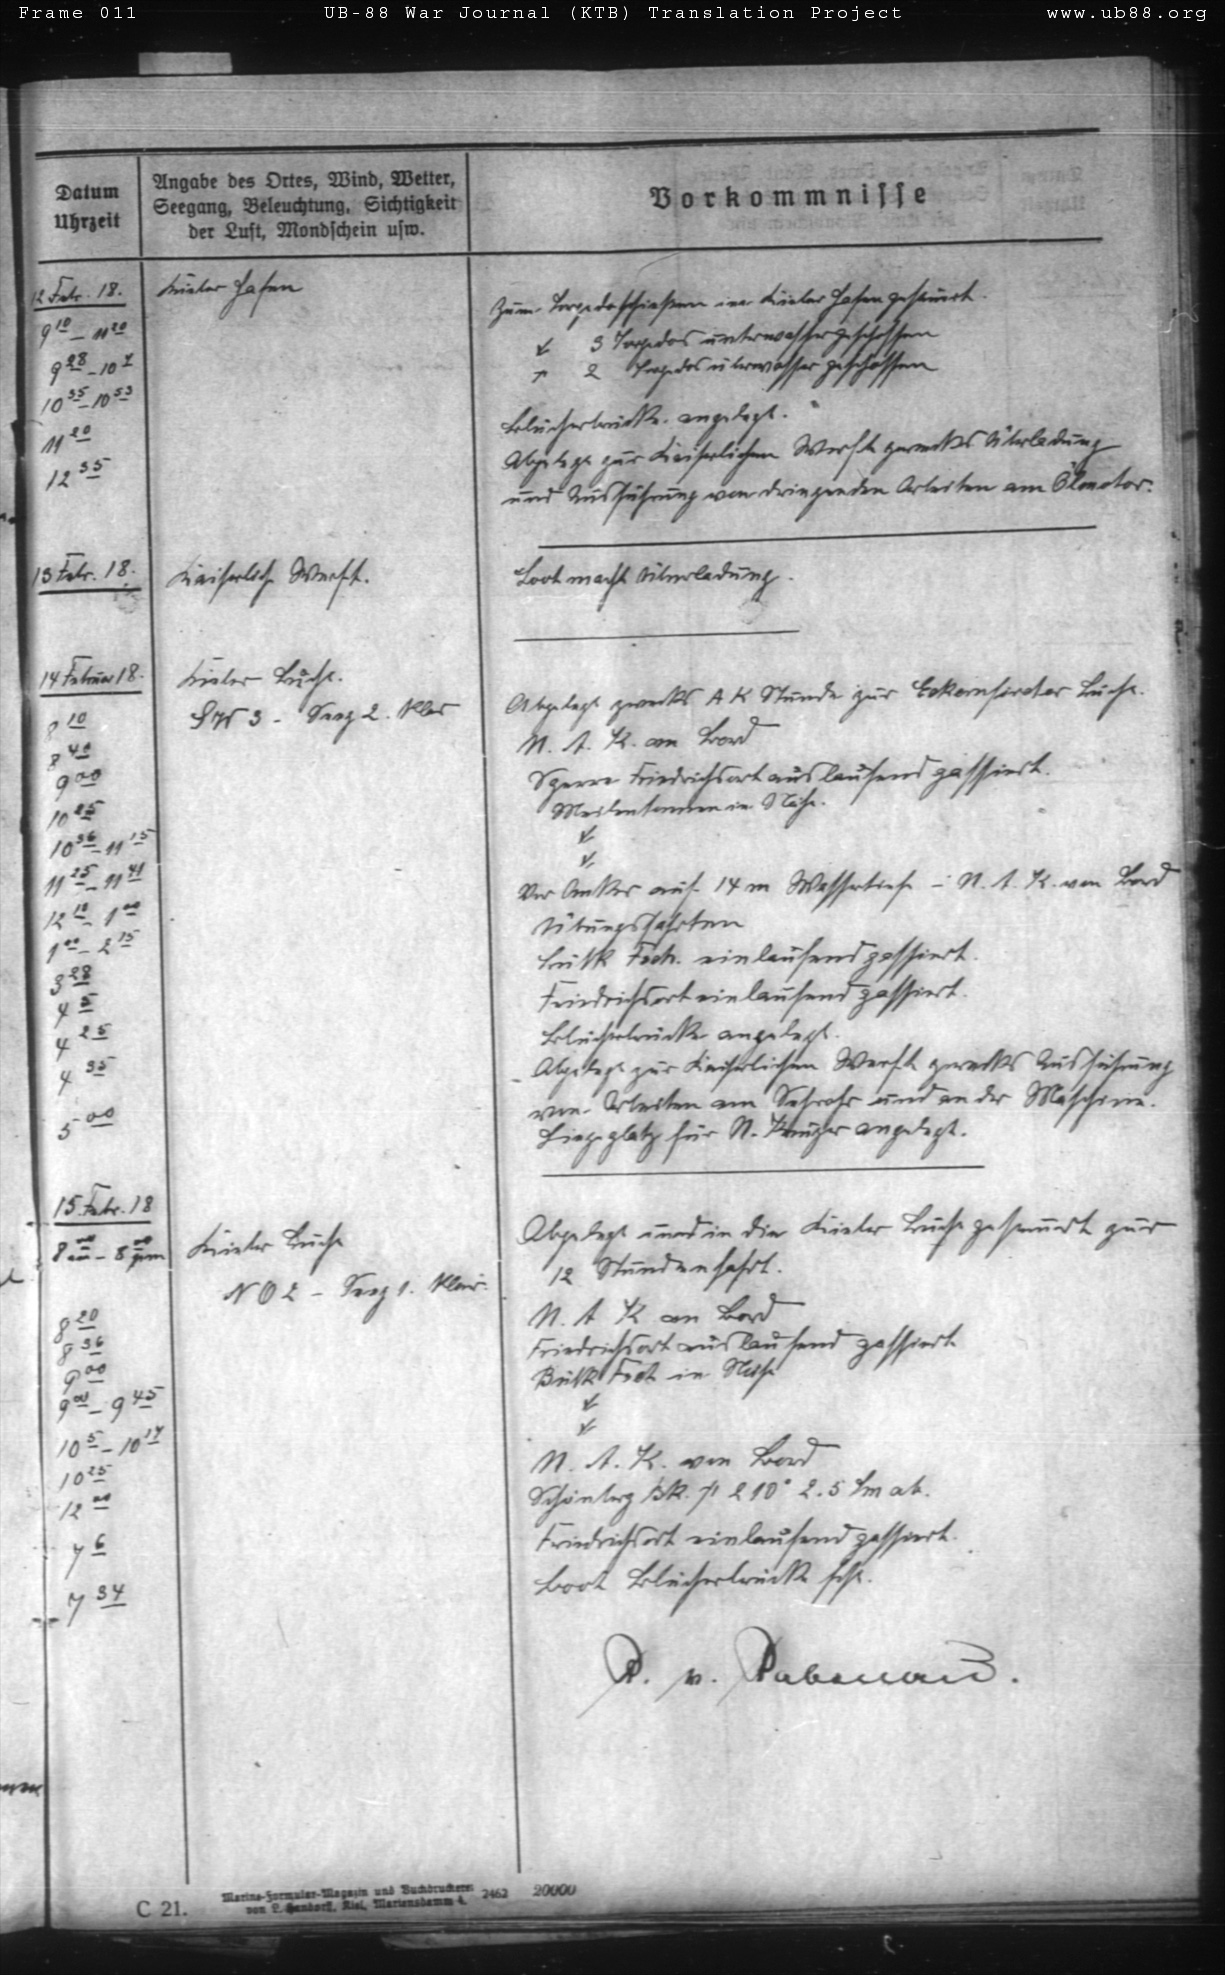 Frame 011 UB-88 War Journal (KTB) Translation Project www.ub88.org
Datum Uhrzeit
Angabe des Ortes, Wind, Wetter,
Seegang, Beleuchtung, Sichtigkeit
der Luft, Mondschein usw.
Vorkommnisse
12 Febr. 18. Kieler Hafen Zum Torpedoschießen im Kieler Hafen gesteuert.
9 10 – 11 20
9 28 – 10 7 ↙ 3 Torpedos unterwasser geschossen
10 35 – 10 53 ↗ 2 Torpedos überwasser geschossen
11 20 Blücherbrücke angelegt.
12 35 Abgelegt zur Kaiserlichen Werft zwecks Überladung
und Ausführung von dringenden Arbeiten am Ölmotor.
13 Febr. 18. Kaiserliche Werft. Boot macht Überladung.
14 Februar 18. Kieler Bucht.
8 10 3 – Seeg 2. klar Abgelegt zwecks AK Stunde zur Eckernförder Bucht.
8 40 N. A. K. an Bord
9 00 Sperre Friedrichsort auslaufend passiert.
10 25 Meilentonnen in Nähe.
10 36 – 11 15 ↙
11 25 – 11 41 ↙
12 10 – 1 00 Vor Anker auf 14 m Wassertiefe – N. A. K. von Bord
1 00 – 2 15 Übungsfahrten
3 28 Bülk Fsch. einlaufend passiert.
4 5 Friedrichsort einlaufend passiert.
4 25 Blücherbrücke angelegt.
4 35 Abgelegt zur Kaiserlichen Werft zwecks Ausführung
von Arbeiten am Sehrohr und an der Maschine.
5 00 Liegeplatz für N. Kreuzer angelegt.
15. Febr. 18
8 00 am – 8 00 pm Kieler Bucht Abgelegt und in die Kieler Bucht gesteuert zur
NO 2 – Seeg 1. klar. 12 Stundenfahrt.
8 20 N. A K an Bord
8 36 Friedrichsort auslaufend passiert
9 00 Bülk Fsch in Nähe
9 00 – 9 45 ↙
10 5 – 10 17 ↙
10 25 N. A. K. von Bord
12 00 Schönberg Bk. 210° 2.5 sm ab.
7 6 Friedrichsort einlaufend passiert.
7 34 Boot Blücherbrücke fest.
R. v. Rabenau.
C 21.
Marine-Formular-Magazin und Buchdruckerei
von L. Handorff, Kiel, Martensdamm 4. 2462 20000